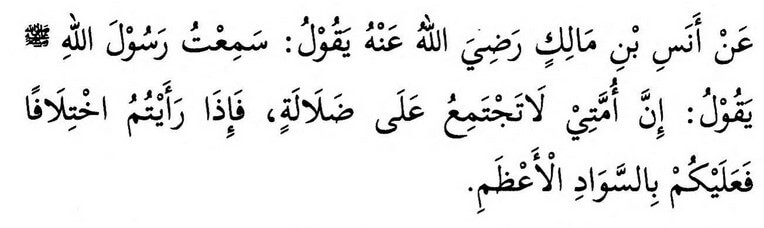 عَنْ أَنَسِ بْنِ مَالِكٍ رَضِيَ اللهُ عَنْهُ يَقُوْلُ: سَمِعْتُ رَسُوْلَ اللهِ ﷺ
يَقُوْلُ: إِنَّ أُمَّتِيْ لَاتَجْتَمِعُ عَلَى ضَلَالَةٍ، فَإِذَا رَأَيْتُمُ اخْتِلَافًا
فَعَلَيْكُمْ بِالسَّوَادِ الْأَعْظَمِ.